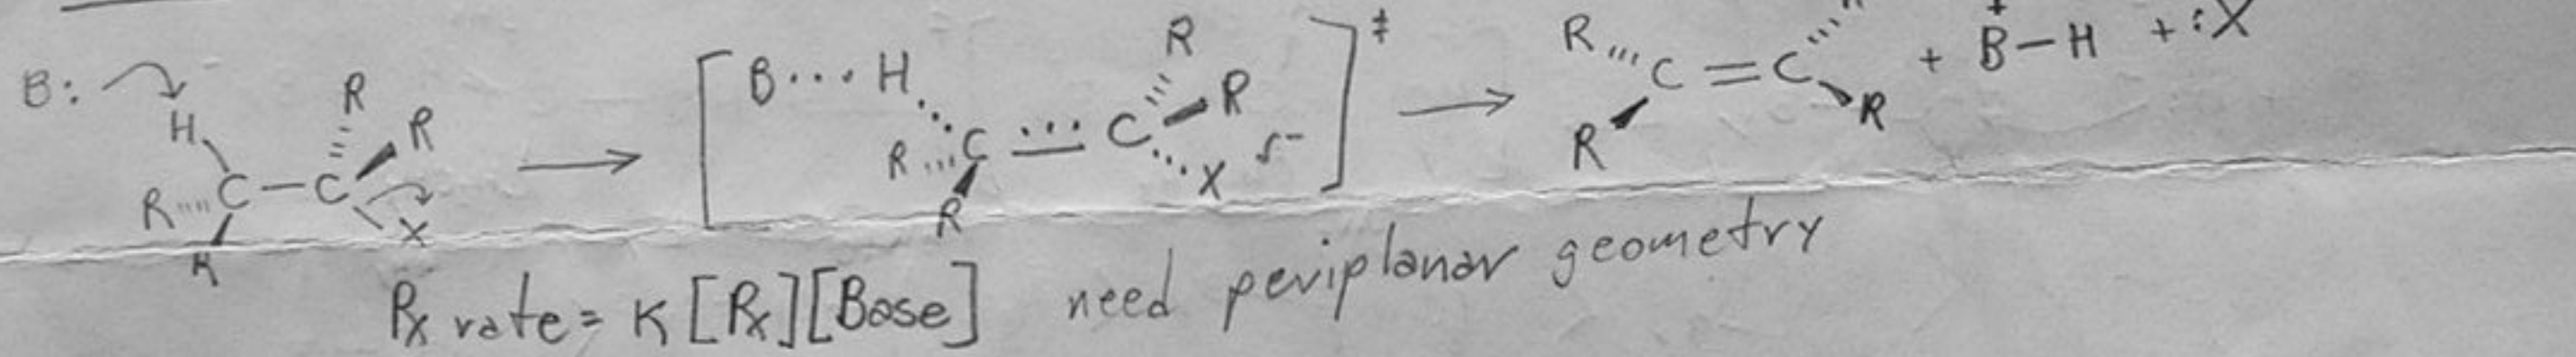 B: H R R R C — C R X → [ B ··· H R C C R R R X δ- ]‡ → R R C = C R + B+ — H + :X
Rx rate = K [Rx][Base] need periplanar geometry